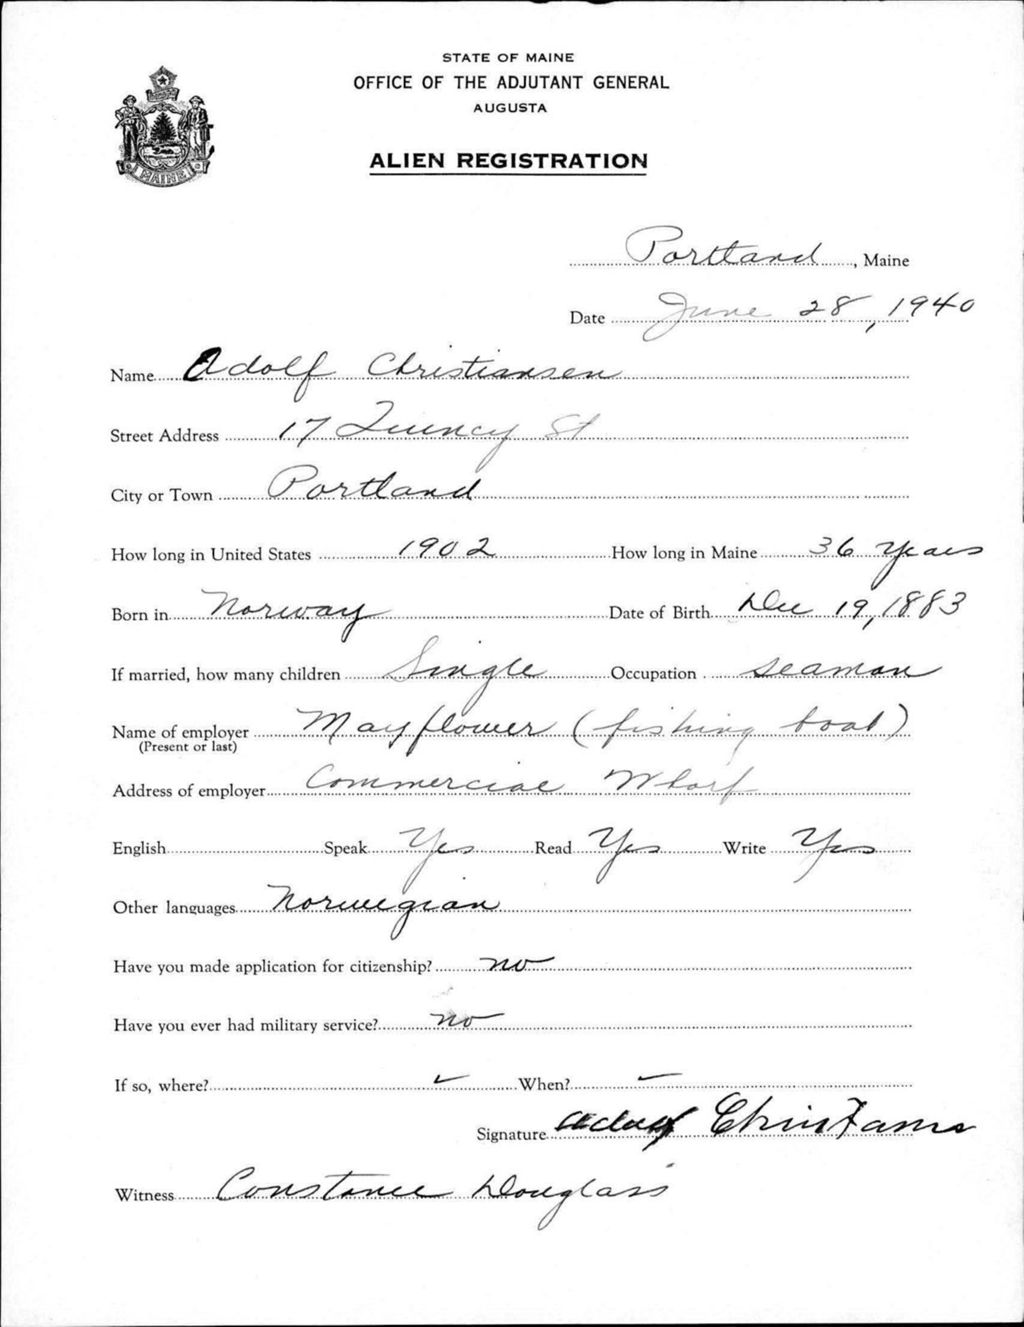 STATE OF MAINE
OFFICE OF THE ADJUTANT GENERAL
AUGUSTA
ALIEN REGISTRATION
MAINE
Portland, Maine
Date June 28, 1940
Name Adolf Christiansen
Street Address 17 Quincy St
City or Town Portland
How long in United States 1902 How long in Maine 36 Years
Born in Norway Date of Birth Dec 19, 1883
If married, how many children Single Occupation Seaman
Name of employer Mayflower (fishing boat)
(Present or last)
Address of employer Commercial Wharf
English Speak Yes Read Yes Write Yes
Other languages Norwegian
Have you made application for citizenship? no
Have you ever had military service? no
If so, where? ✓ When? ✓
Signature Adolf
Witness Constance Douglass